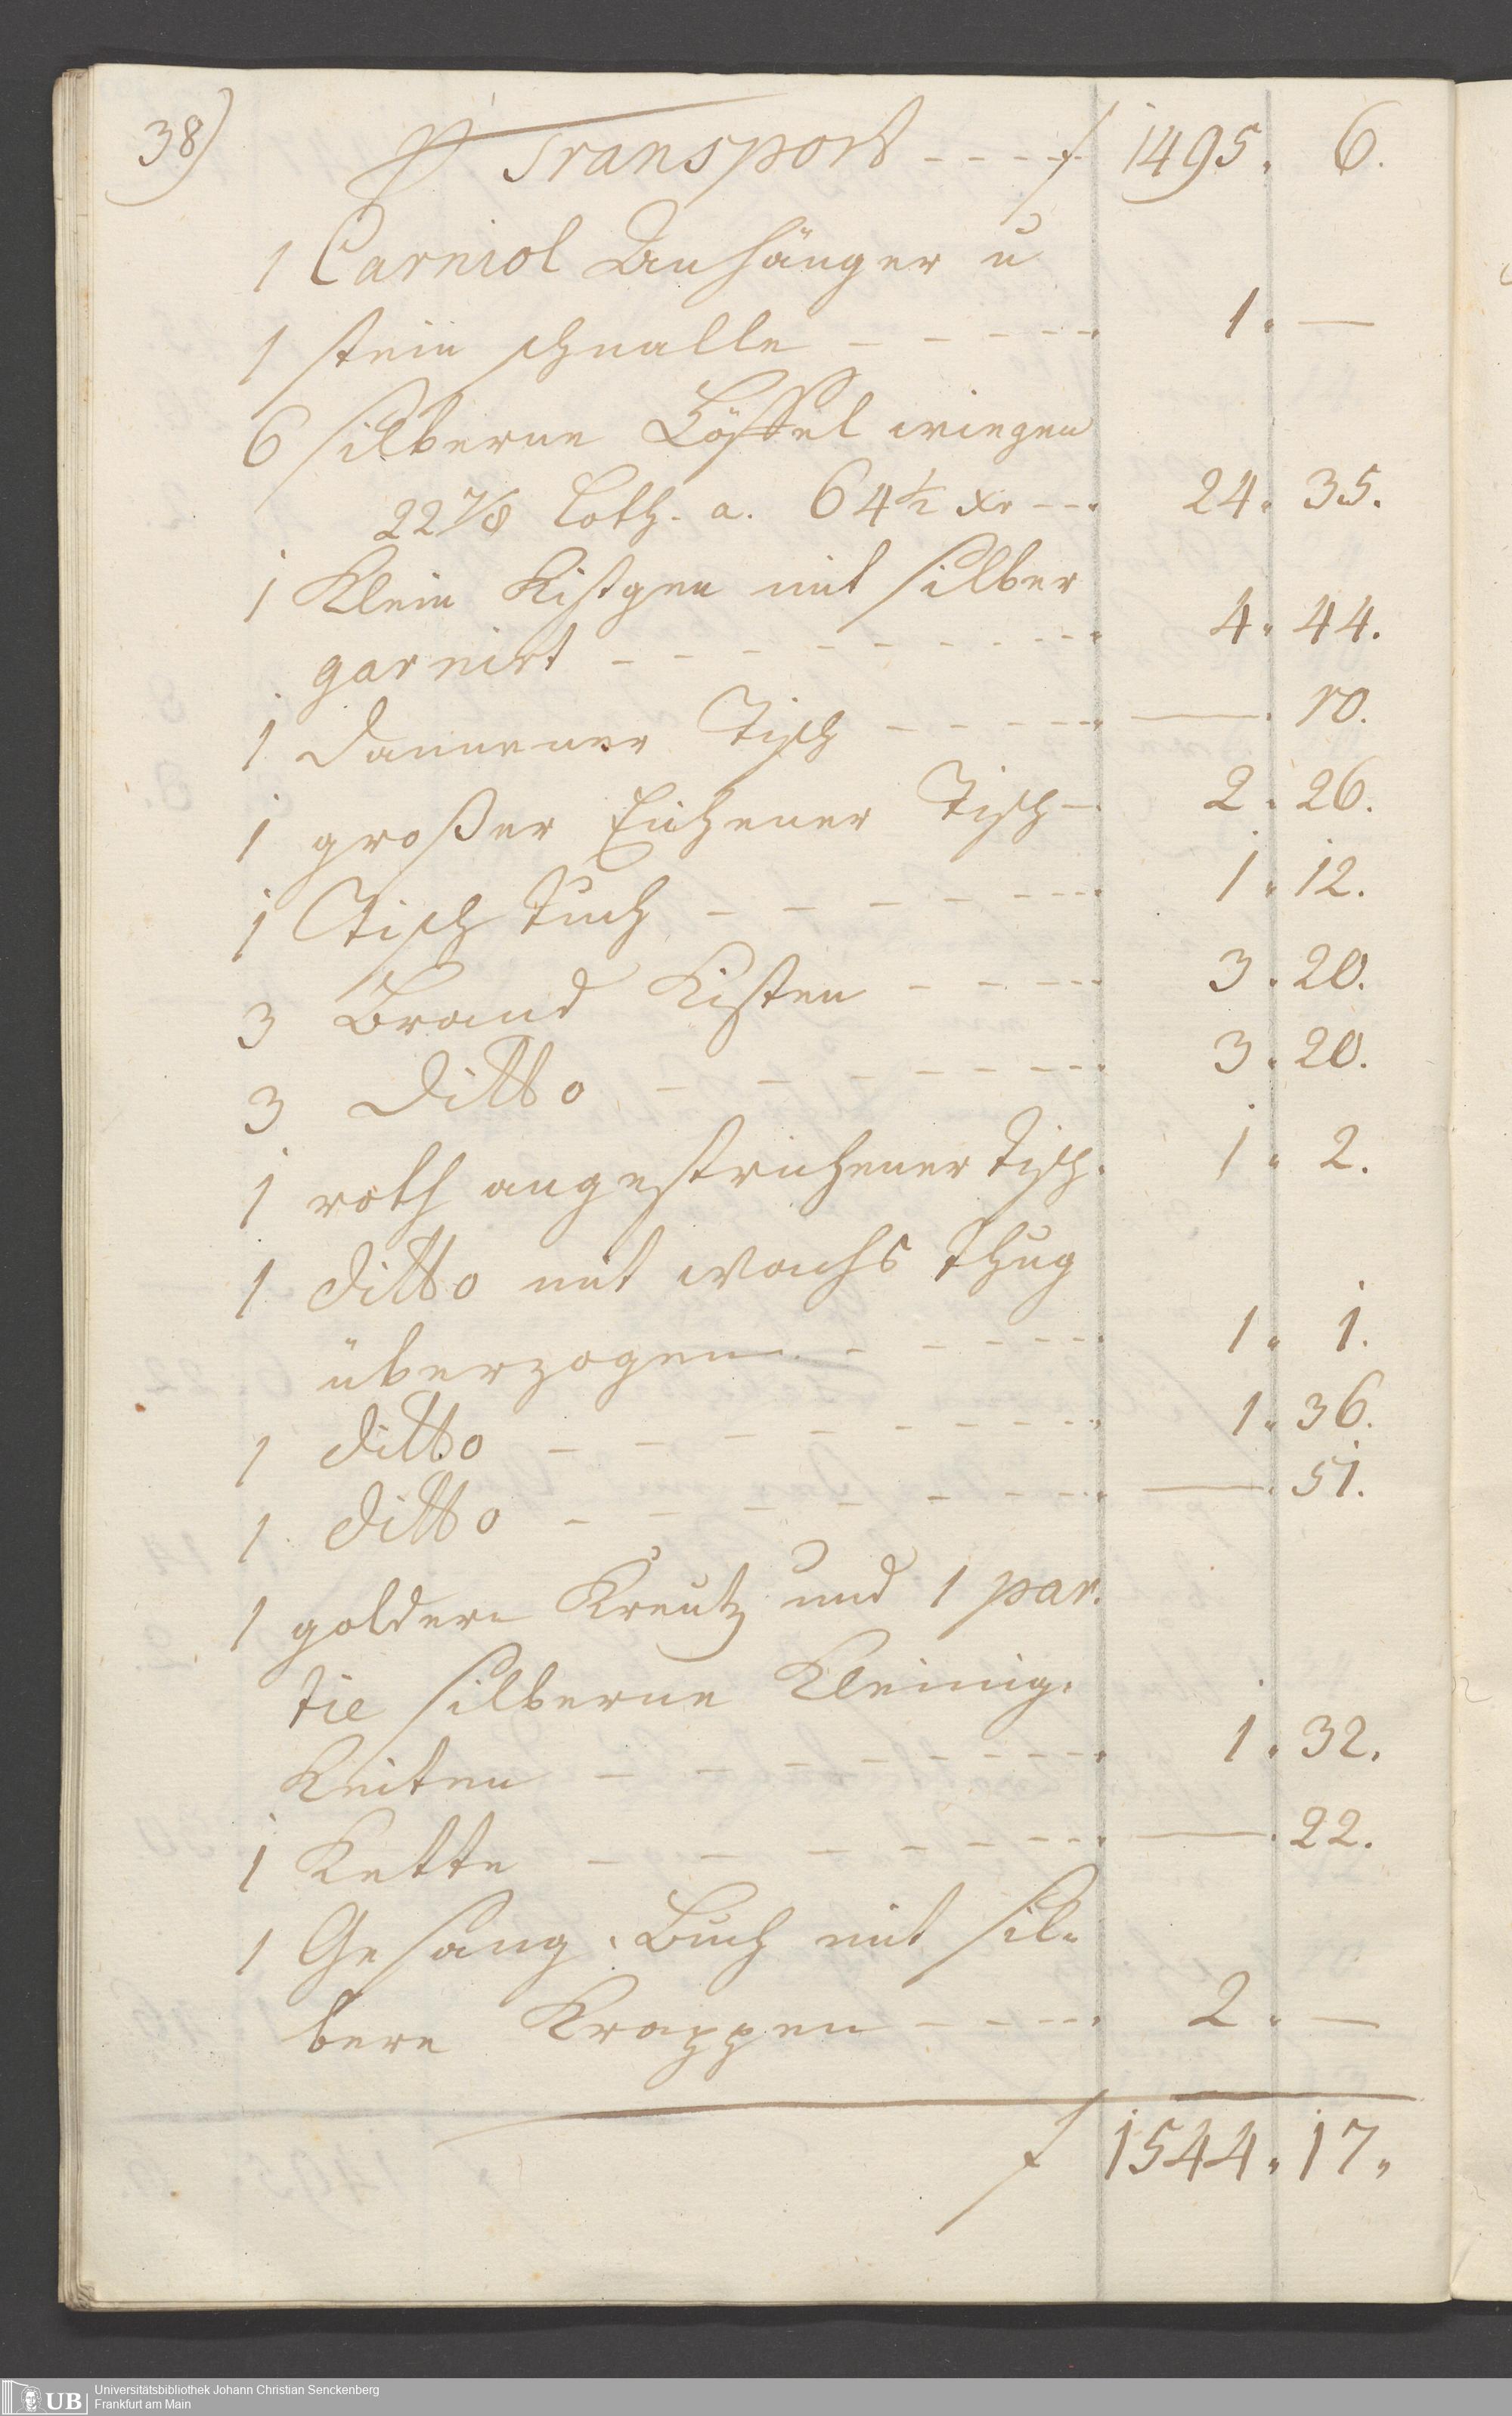 38)
P Transport - - - - f 1495. 6.
1 Carniol Anhänger u
1 stein schnalle - - - - - 1. —
6 silberne Löffel wiegen
22 7/8 Loth. a. 64 1/2 xr - - - 24. 35.
1 Klein Kistgen mit silber
garnirt - - - - - - - - - 4. 44.
1 Dannener Tisch - - - - - — . 10.
1 großer Eichener Tisch - 2. 26.
1 Tisch Tuch - - - - - - - 1. 12.
3 Brand Kisten - - - - - 3. 20.
3 Ditto - - - - - - - - 3. 20.
1 roth angestrichener Tisch. 1. 2.
1 ditto mit wachs Thug
überzogen - - - - - 1. 1.
1 ditto - - - - - - - - 1. 36.
1 ditto - - - - - - - - — . 51.
1 goldern Kreutz und 1 par.
tie silberne Kleinig.
Keiten - - - - - - - - 1. 32.
1 Kette - - - - - - - — . 22.
1 Gesang. Buch mit sil.
bere Krappen - - - - 2. —
f 1544. 17.
UB
Universitätsbibliothek Johann Christian Senckenberg
Frankfurt am Main